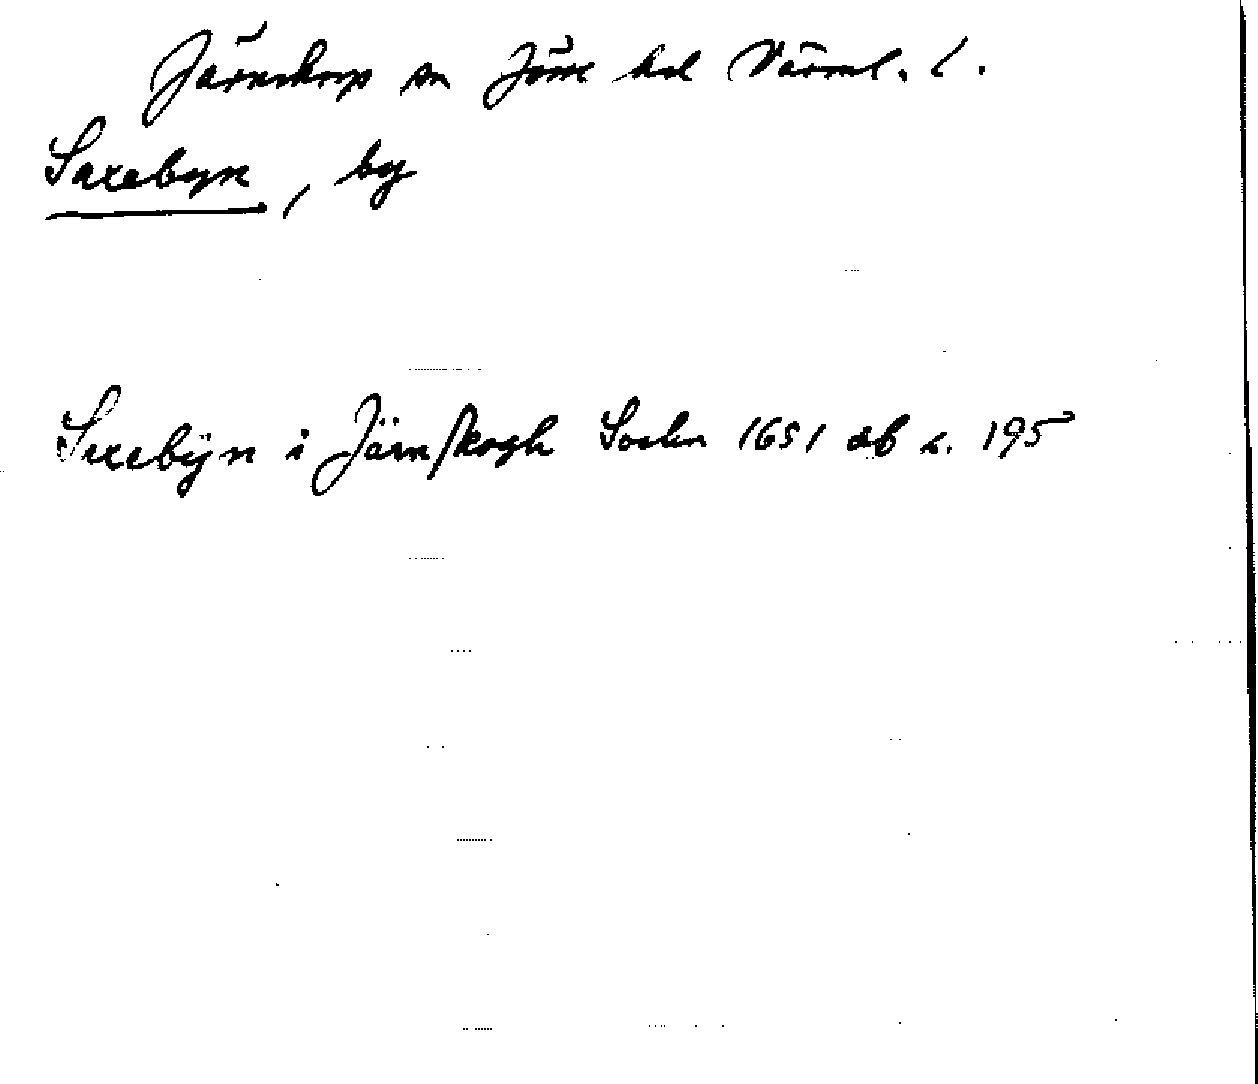 Järnskogs sn Jösse hd Värml. l.
Saxebyn, by
Saxebÿn i Järnskogh Sochn 1651 db s. 195